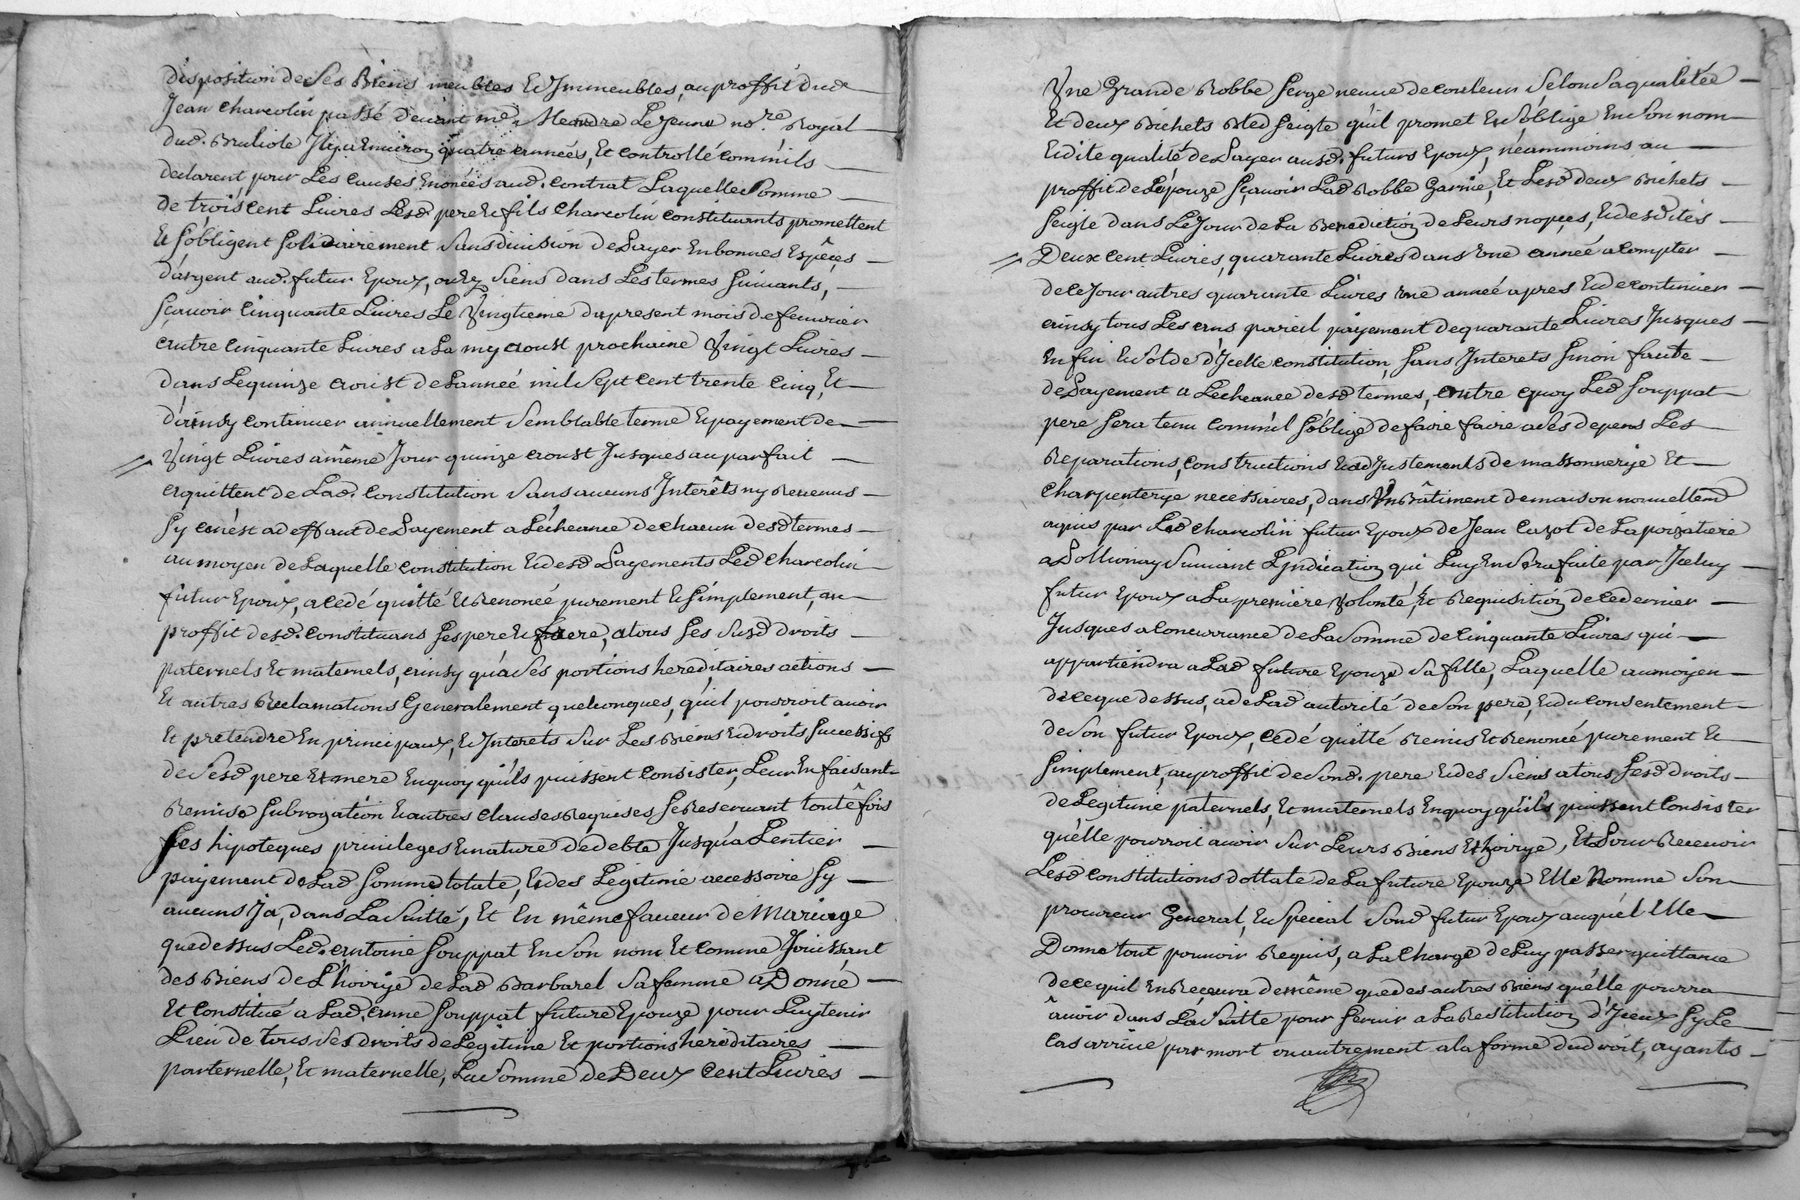 disposition de Ses Biens meubles et Immeubles, au proffit dud.
Jean charcolin passé devant me. Lejeune nore. Royal
dud. Il y a Environ quatre années, Et controllé comm'ils
declarent pour Les Causes Enoncées aud. contrat Laquelle Somme
de trois cent Livres Lesd. pere et fils charcolin constituants promettent
Et S'obligent Solidairement Sans division de Payer En bonnes Espêces
d'argent aud. futur Epoux, ou ez Siens dans Les termes Suivants,
Sçavoir Cinquante Livres Le Vingtieme du present mois de fevrier
autre Cinquante Livres a La my aoust prochaine Vingt Livres
dans Le quinze aoust de L'année mil Sept cent trente Cinq, Et
d'ainsy continuer annuellement Semblable terme et payement de
Vingt Livres a même Jour quinze aoust Jusques au parfait
acquittent de Lad. Constitution Sans aucuns Interêts ny Revenus
Sy ce n'est a deffaut de Payement a L'écheance de chacun desd. termes
au moyen de Laquelle constitution et desd. Payements Led. charcolin
futur Epoux, a Cedé quitté et Renoncé purement et Simplement, au
proffit desd. Constituans Ses pere et frere, a tous Ses Susd. droits
paternels Et maternels, ainsy qu'a Ses portions hereditaires actions
Et autres Reclamations Generalement quelconques, qu'il pourroit avoir
Et pretendre En principaux, et Interets Sur Les Biens et droits Successifs
de Sesd. pere Et mere En quoy qu'ils puissent Consister, Leur En faisant
Remise Subrogation et autres Clauses Requises Se Reservant toute fois
Ses hipoteques privileges et nature de debte Jusqu'a L'entier
payement de Lad. Somme totale, et des Legitime accessoire Sy
aucuns Ja, dans La Suitte, Et En même faveur de Mariage
que dessus Led. antoine Souppat En Son nom Et comme Jouissant
des Biens de L'hoirye de Lad. Barbarel Sa femme a Donné
Et Constitué a Lad. anne Souppat future Epouze pour Luy tenir
Lieu de tous Ses droits de Legitime Et portions hereditaires
paternelle, Et maternelle, La Somme de Deux Cent Livres
Vne Grande Robbe Serge neuve de couleur Selon Sa qualitée
Et deux Bichets Bled Seigle qu'il promet Et S'oblige En Son nom
Et dite qualité de Payer ausd. futurs Epoux, néammoins au
proffit de L'épouze Sçavoir Lad. Robbe Garnie, Et Lesd. deux Bichets
Seigle dans Le Jour de La Benediction de Leurs nopces, Et desdites
Deux Cent Livres, quarante Livres dans une année a Compter
de Ce Jour autres quarante Livres une année apres Et de continuer
ainsy tous Les ans pareil payement de quarante Livres Jusques
En fin et Solde d'Icelle constitution, Sans Interets Sinon faute
de Payement a L'echeance desd. termes, outre quoy Led. Souppat
pere Sera tenu Comm'il S'oblige de faire faire a Ses depens Les
Reparations, constructions et adjustements de massonnerye Et
charpenterye necessaires, dans Un Bâtiment de maison nouvellemt.
aquis par Led. charcolin futur Epoux de Jean Cazot de
a Pollionay Suivant L'Jndication qui Luy En Sera faite par Jceluy
futur Epoux a La premiere Volonté, Et Requisition de Ce dernier
Jusques a Concurrance de La Somme de Cinquante Livres qui
appartiendra a Lad. future Epouze Sa fille, Laquelle au moyen
de ce que dessus, a de Lad. autorité de Son pere, et du Consentement
de Son futur Epoux, Cedé quitté Remis Et Renoncé purement et
Simplement, au proffit de Sond. pere et des Siens a tous Sesd. droits
de Legitime paternels, Et maternels En quoy qu'ils puissent Consister
qu'elle pourroit avoir Sur Leurs Biens Et hoirye, Et Pour Recevoir
Lesd. Constitutions dottale de La future Epouze Elle Nomme Son
procureur General, et Special Sond. futur Epoux auquel Elle
Donne tout pouvoir Requis, a La Charge de Luy passer quittance
de ce qu'il En Recevra de même que des autres Biens qu'elle pourra
avoir dans La Suitte pour Servir a La Restitution d'Jceux Sy Le
Cas arrive par mort ou autrement a la forme du droit, ayants